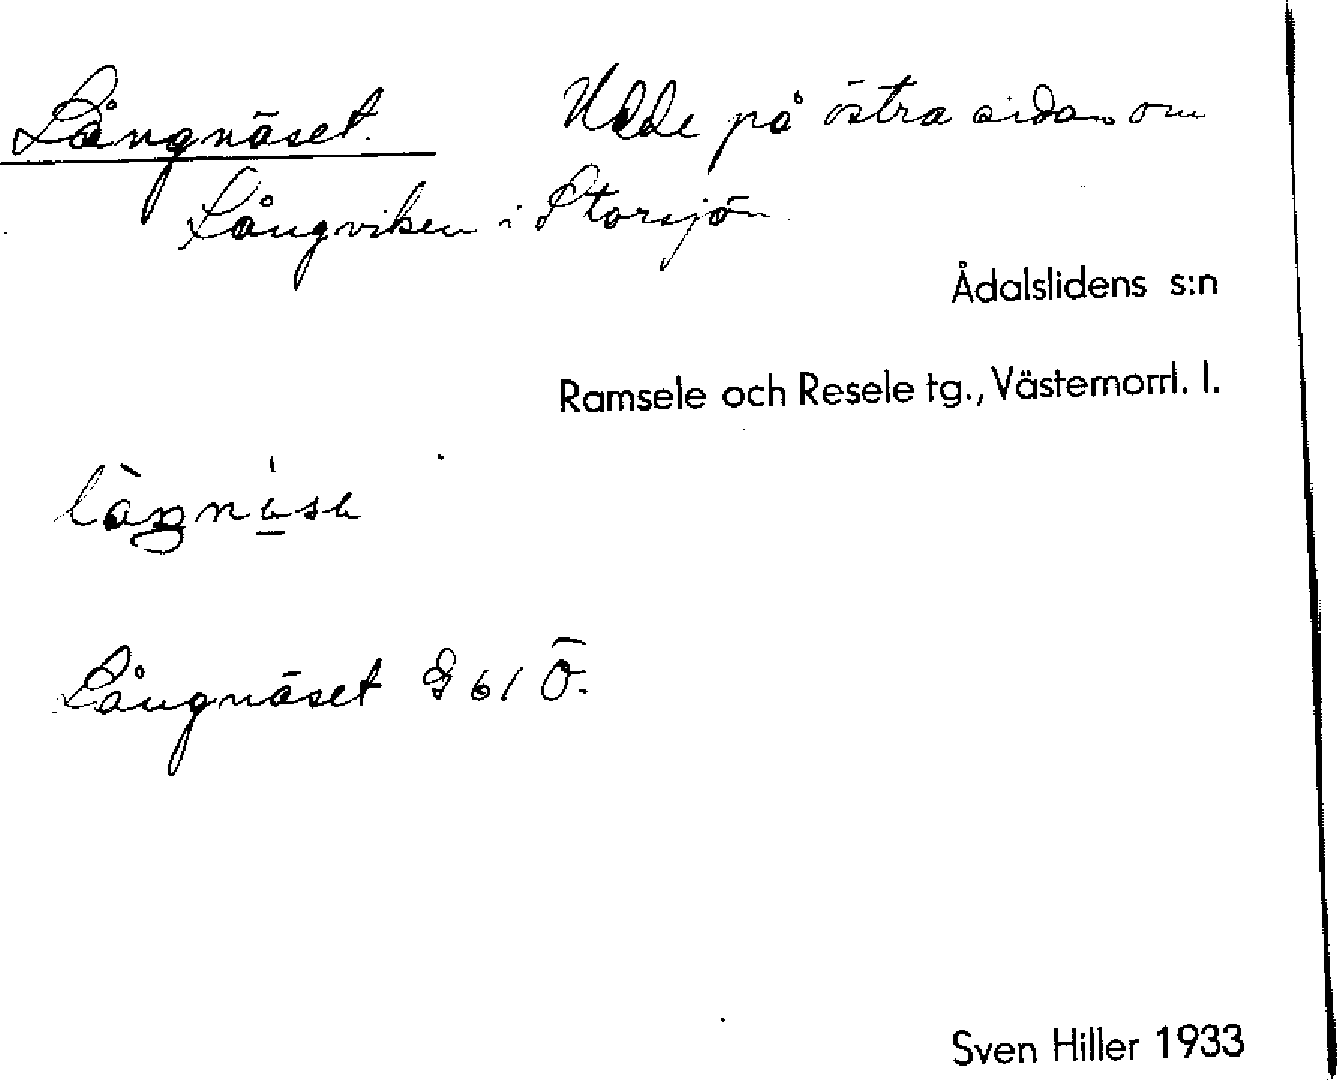 Långnäset. Udde på östra sidan om
Långviken i Storsjön.
Ådalslidens s:n
Ramsele och Resele tg., Västernorrl. l.
Långnäset G 61 Ö.
Sven Hiller 1933